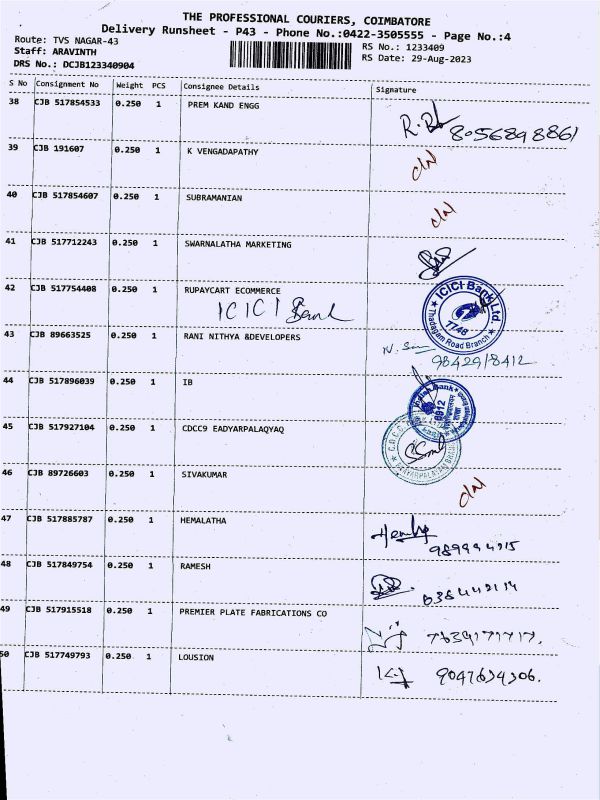 THE PROFESSIONAL COURIERS, COIMBATORE
Delivery Runsheet - P43 - Phone No.:0422-3505555 - Page No.:4
Route: TVS NAGAR-43
Staff: ARAVINTH
DRS No.: DCJB123340904
RS No.: 1233409
RS Date: 29-Aug-2023
S No Consignment No Weight PCS Consignee Details Signature
38 CJB 517854533 0.250 1 PREM KAND ENGG 8056898861
39 CJB 191607 0.250 1 K VENGADAPATHY
40 CJB 517854607 0.250 1 SUBRAMANIAN
41 CJB 517712243 0.250 1 SWARNALATHA MARKETING
42 CJB 517754408 0.250 1 RUPAYCART ECOMMERCE
ICICI Bank
ICICI Bank Ltd
7748
Thadagam Road Branch
43 CJB 89663525 0.250 1 RANI NITHYA &DEVELOPERS
98429/8412
44 CJB 517896039 0.250 1 IB
45 CJB 517927104 0.250 1 CDCC9 EADYARPALAQYAQ
46 CJB 89726603 0.250 1 SIVAKUMAR
47 CJB 517885787 0.250 1 HEMALATHA
48 CJB 517849754 0.250 1 RAMESH
49 CJB 517915518 0.250 1 PREMIER PLATE FABRICATIONS CO
7639171717.
50 CJB 517749793 0.250 1 LOUSION
9047634306.